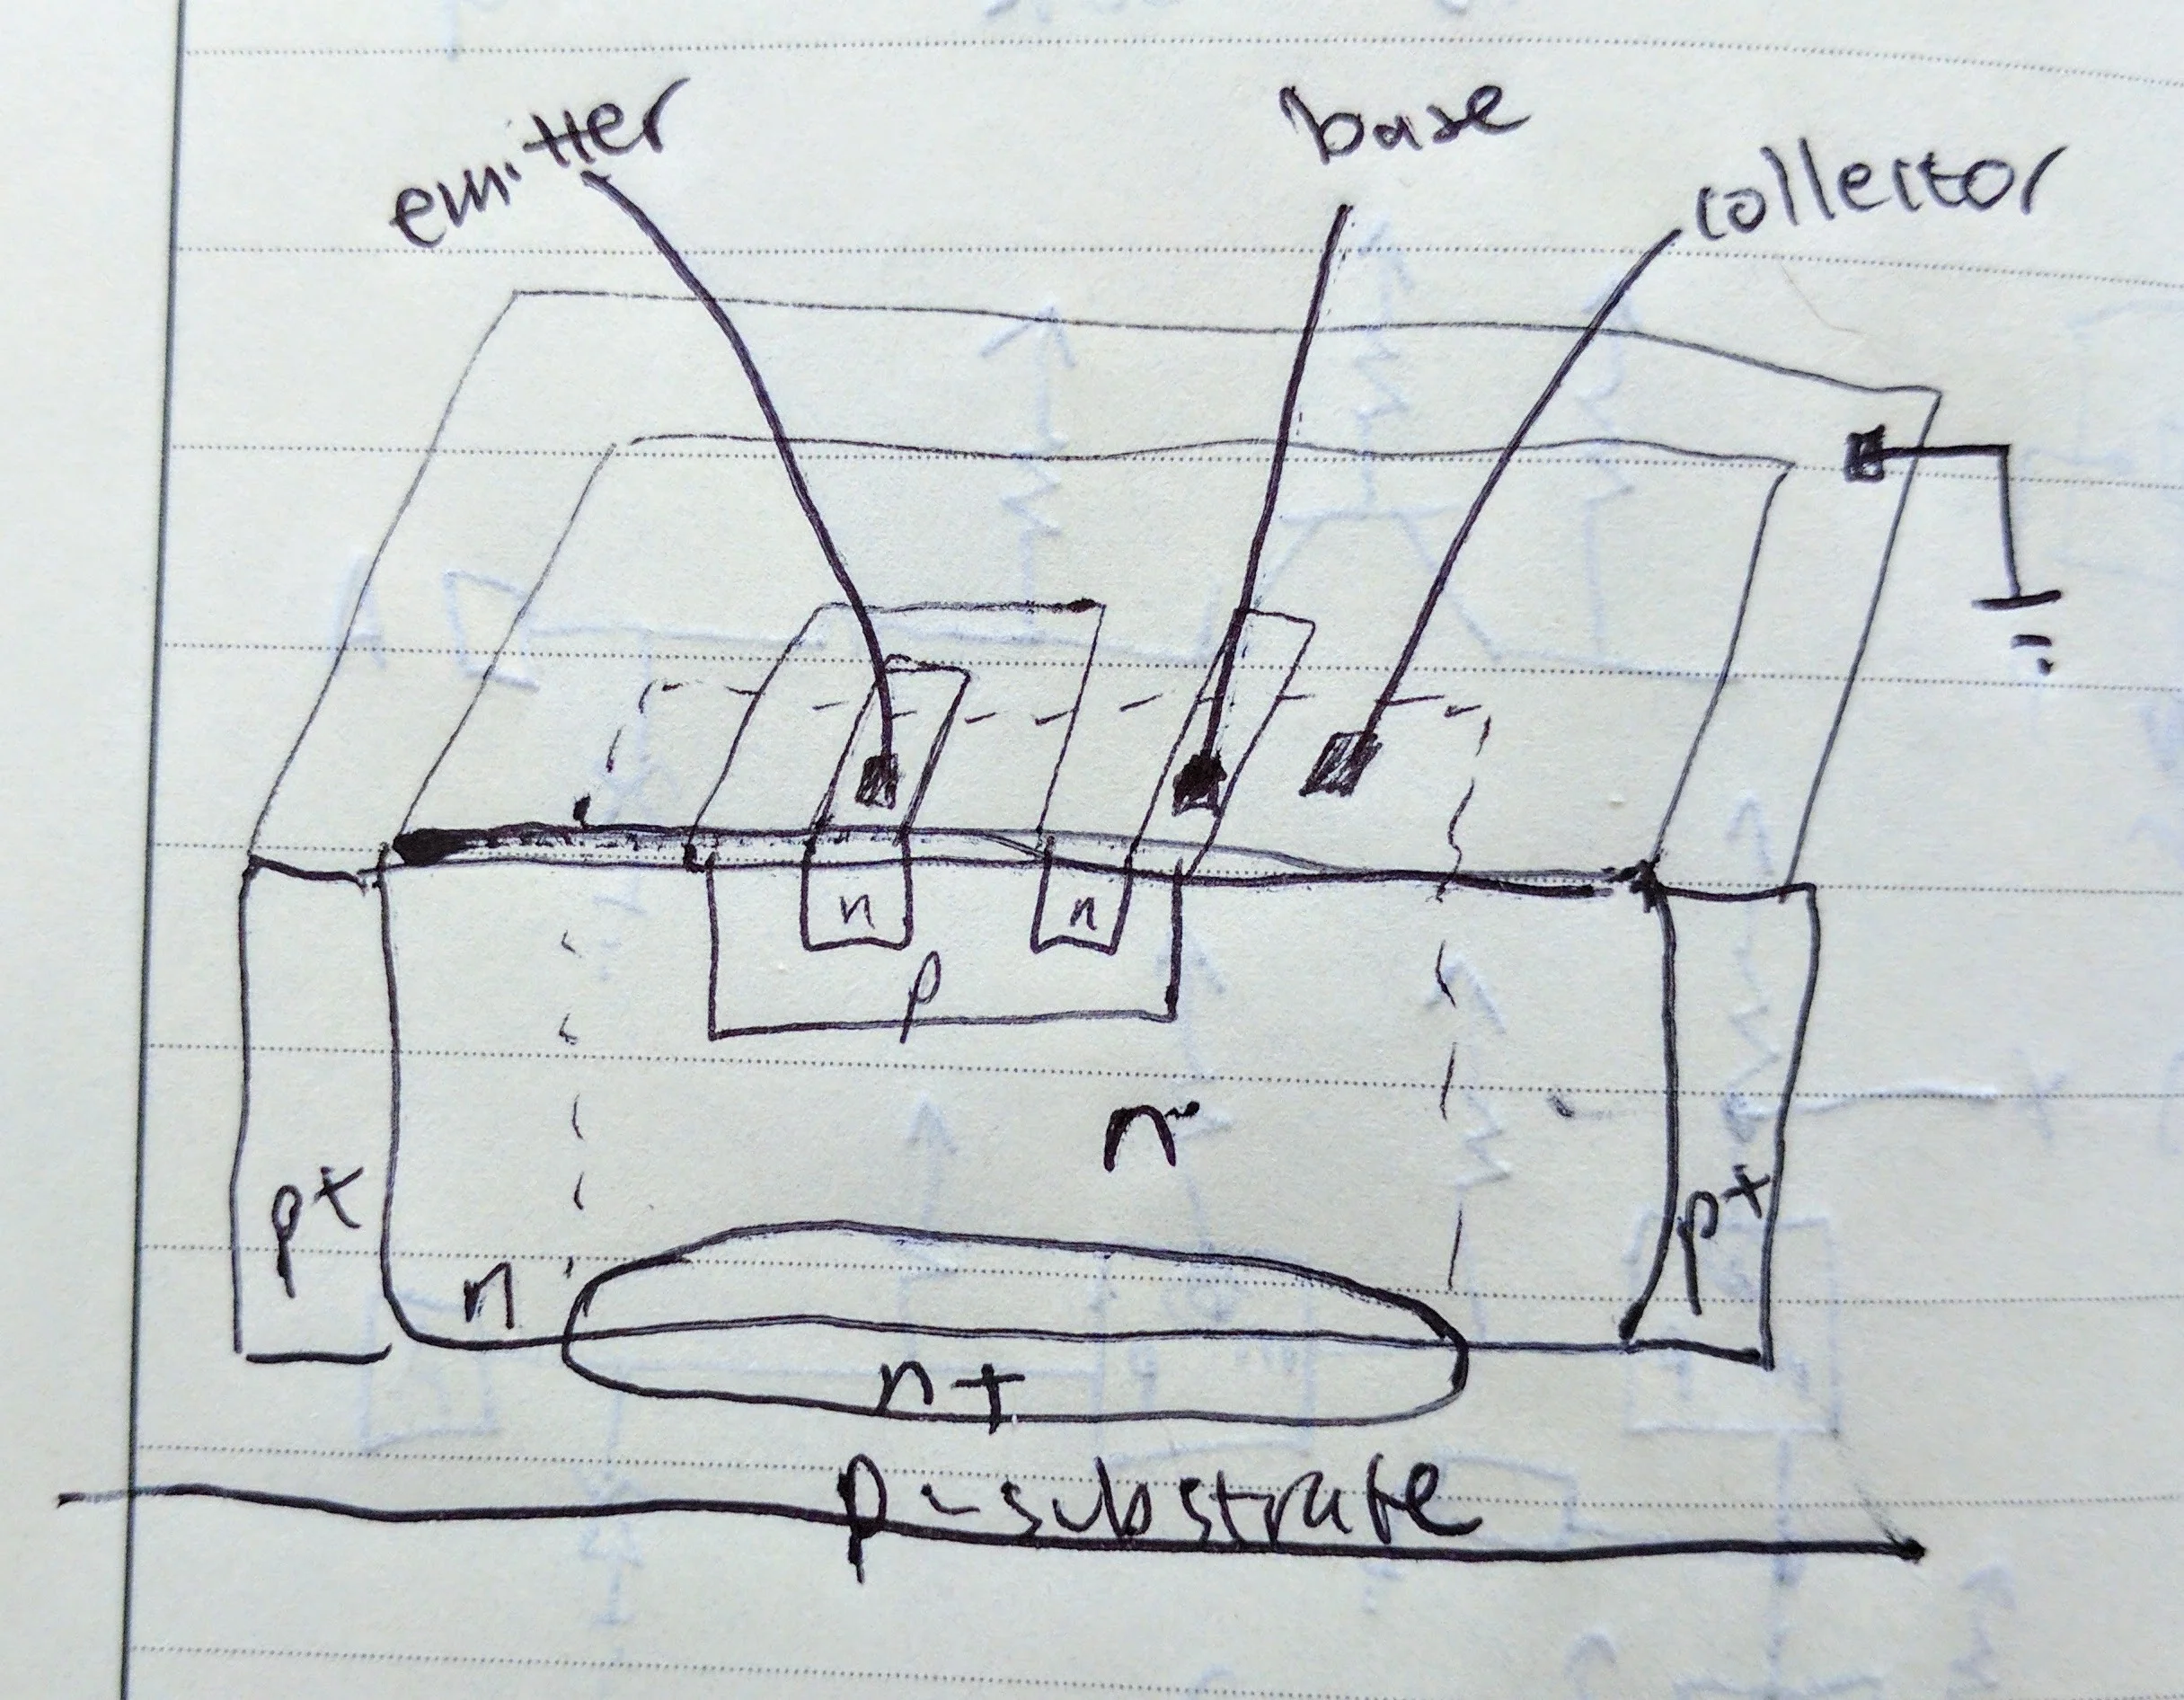 emitter
base
collector
n
n
p
n
p+
p+
n
n+
p-substrate